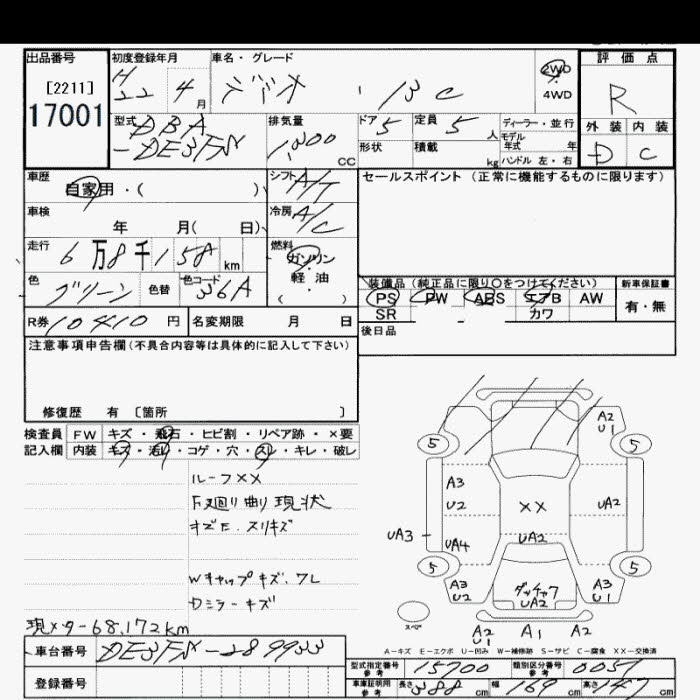 出品番号 初度登録年月 車名・グレード 2WD 評価点
[2211] H 22 年 4月 デミオ 13C 4WD R
17001 型式 DBA 排気量 ドア 5 定員 5人 ディーラー・並行 外装 内装
-DE3FN 1,300 CC 形状 積載 kg モデル年式 年 D C
ハンドル 左・右
車歴 自家用・( ) シフト A/T セールスポイント (正常に機能するものに限ります)
車検 年 月( 日) 冷房 A/C
走行 6万8千158 km 燃料 ガソリン・軽油 ( )
色 グリーン 色替 色コード 36A 装備品 (純正品に限り〇をつけてください) 新車保証書
PS PW ABS エアB AW 有・無
SR カワ
R券 10410 円 名変期限 月 日 後日品
注意事項申告欄 (不具合内容等は具体的に記入して下さい)
修復歴 有 〔箇所 〕
検査員 FW キズ・飛石・ヒビ割・リペア跡・×要
記入欄 内装 キズ・汚レ・コゲ・穴・スレ・キレ・破レ
ルーフXX
下廻り曲り現状
キズE.スリキズ
Wキャップキズ、ワレ
Dミラーキズ
現メター68,172km
A2
U1
5 5
A3
U2 XX UA2
UA3 UA4 UA2
5 5
A3
U2 ダッチャク
UA2 A3
U1
スペア A2
U2 A1 A2
A-キズ E-エクボ U-凹み W-補修跡 S-サビ C-腐食 XX-交換済
車台番号 DE3FN-289933 型式指定番号 参考 15700 類別区分番号 参考 0057
登録番号 車庫証明用 参考 長さ 388 cm 幅 169 cm 高さ 147 cm